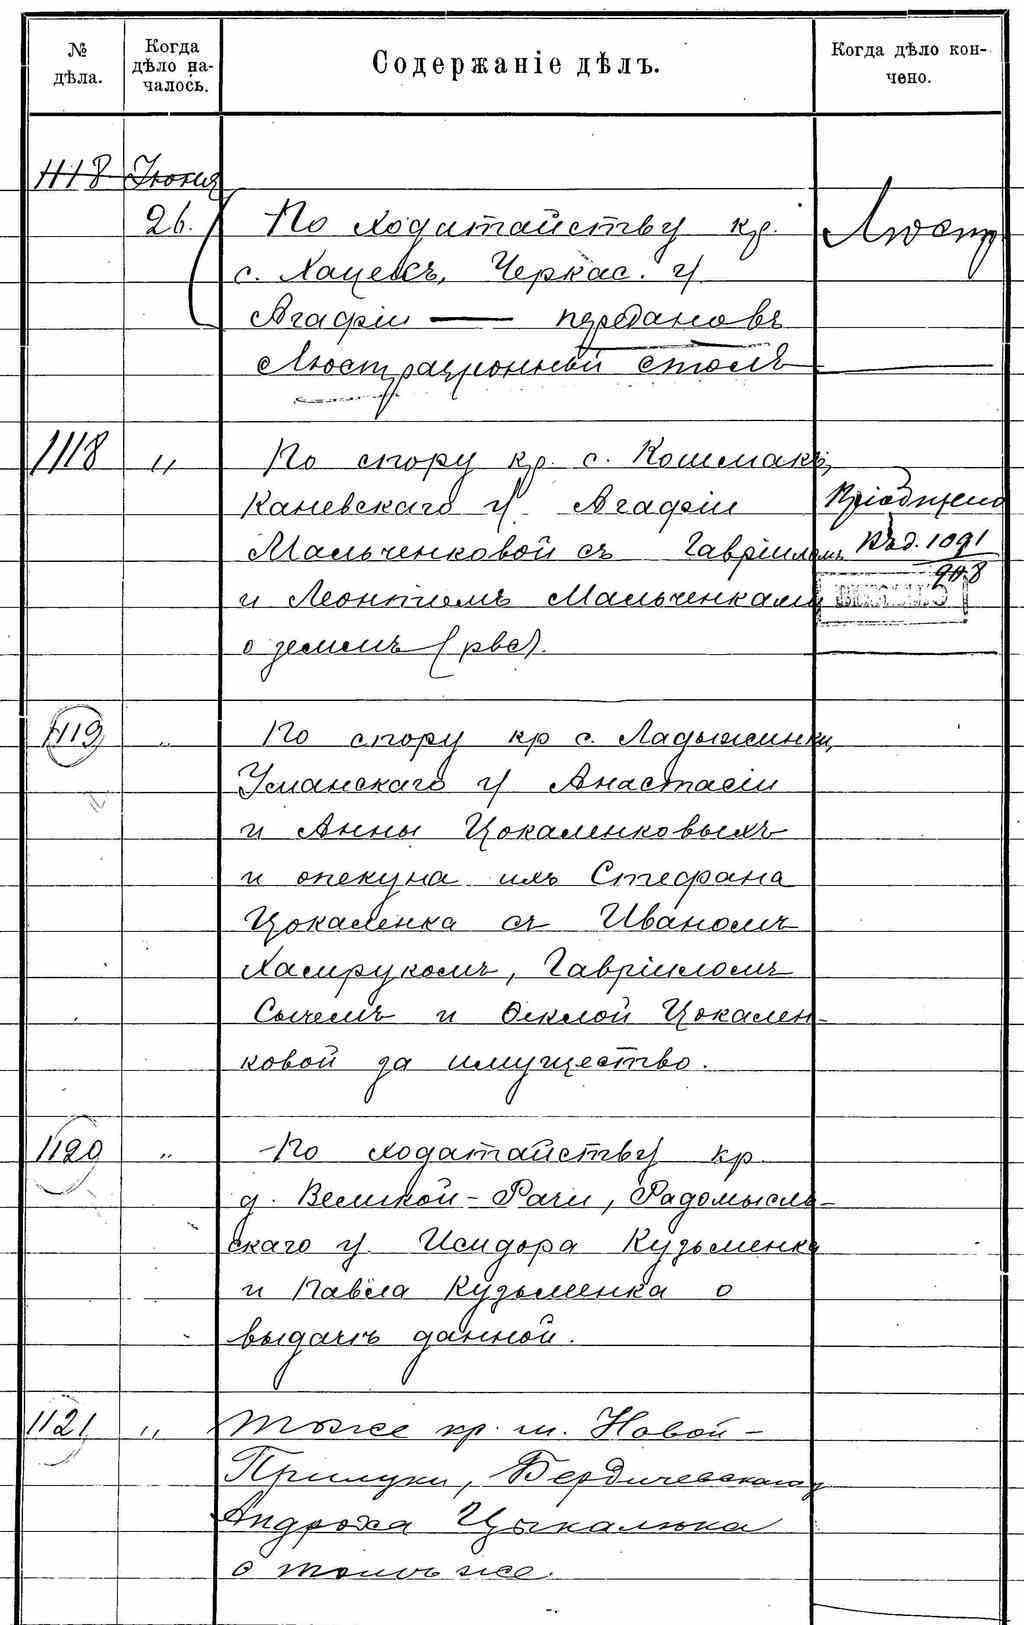 № дѣла.
Когда дѣло началось.
Содержаніе дѣлъ.
Когда дѣло кончено.
1118 Іюня
26. По ходатайству кр. Люстр.
с. Хацекъ, Черкас. у
Агафіи — передановъ
Люстраціонный столъ
1118 " По спору кр. с. Кошмакъ,
Каневскаго у. Агафіи Пріобщено
Мальченковой съ Гавріиломъ къ д. 1091
и Леонтіемъ Мальченками 908
о землѣ (рвс).
1119 " По спору кр с. Ладыжинки,
Уманскаго у Анастасіи
и Анны Цокаленковыхъ
и опекуна ихъ Стефана
Цокаленка съ Иваномъ
Хамрукомъ, Гавріиломъ
Сычемъ и Феклой Цокален-
ковой за имущество.
1120 " По ходатайству кр
д. Великой-Рачи, Радомысль-
скаго у. Исидора Кузьменка
и Павла Кузьменка о
выдачѣ данной.
1121 " Тоже кр. м. Новой-
Прилуки, Бердичевскаго у
Андроха Цыкалюка
о томъ же.